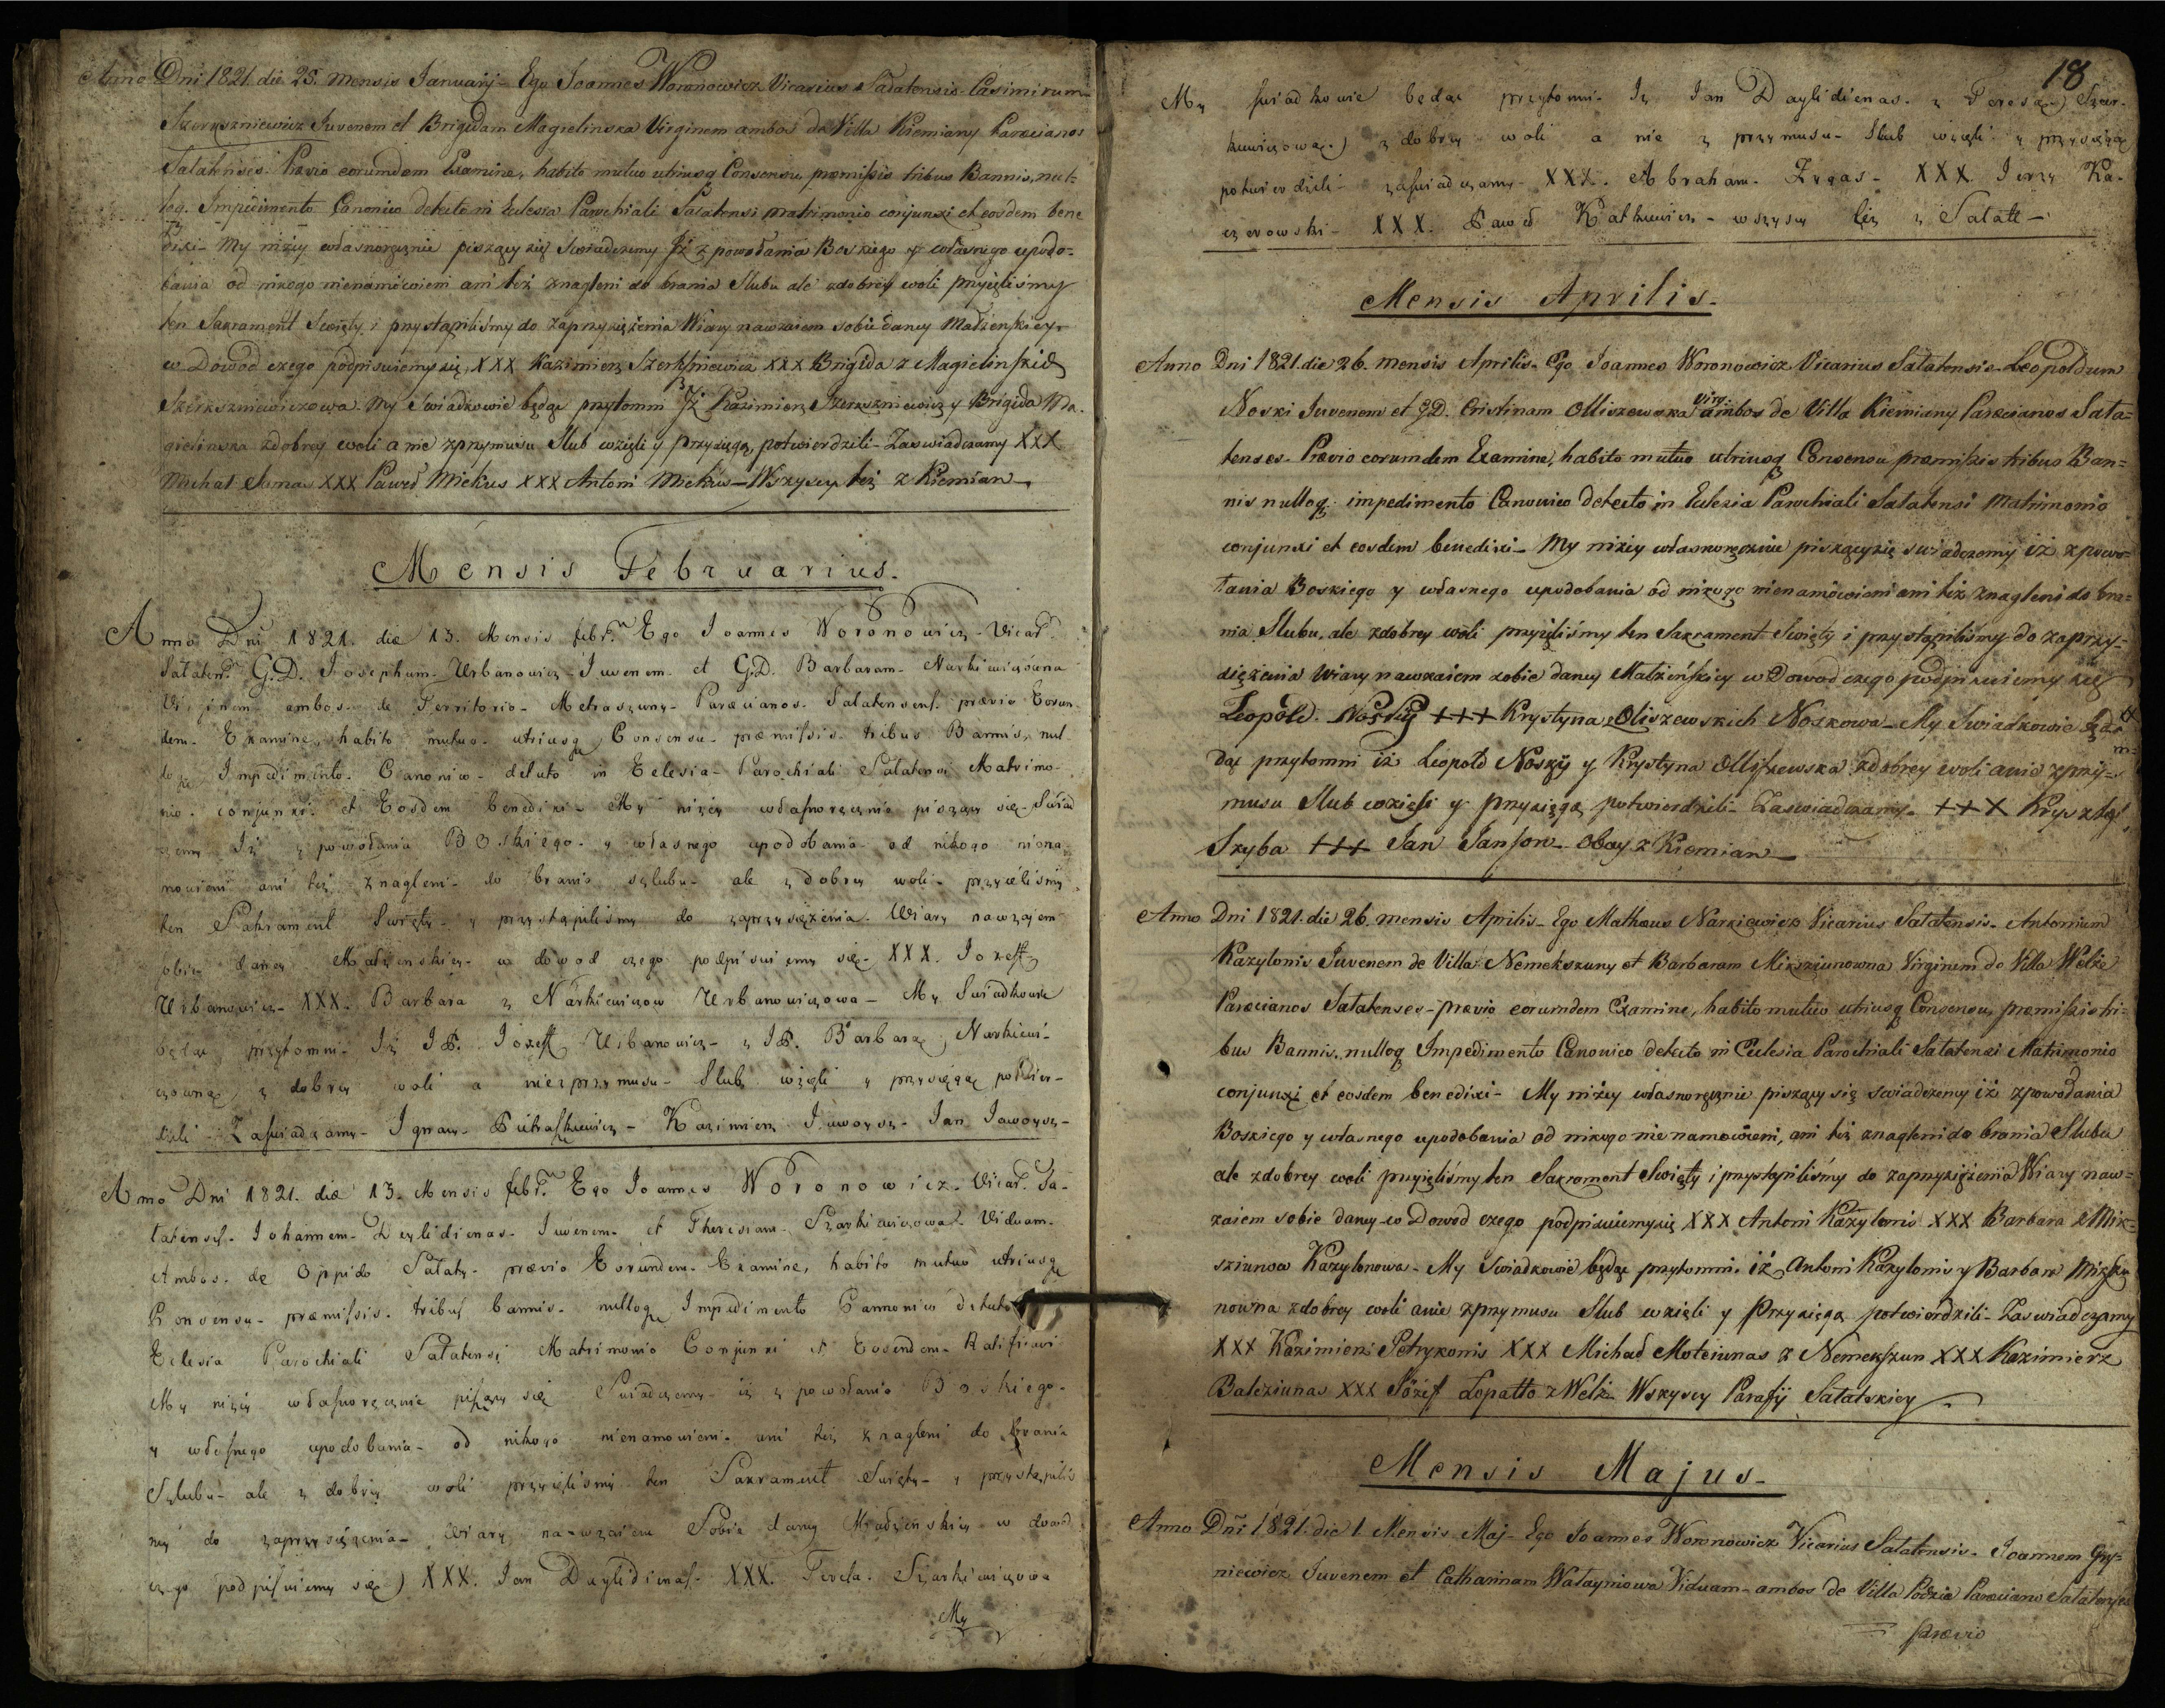 Anno Dni 1821. die 25. mensis Januarij - Ego Joannes Woronowicz Vicarius Sałatensis. Casimirum
Szerkszniewicz Juvenem et Brigidam Magielinska Virginem ambos de Villa Kiemiany Paræcianos
Sałatenses. Prævio eorumdem Examine, habito mutuo utriusq Consensu, præmissis tribus Bannis, nul-
loq. Impedimento Canonico detecto in Eclesia Parochiali Sałatensi matrimonio conjunxi et eosdem bene
dixi - My niżey własnoręcznie piszący się Swiadczemy Jż z powołania Boskiego y własnego upodo-
bania od nikogo nienamówieni ani też znagleni do brania Slubu ale zdobrey woli przyięliśmy
ten Sakrament Swięty i przystąpiliśmy do zaprzysiężenia Wiary nawzaiem sobie daney Małżenskiey
w Dowod czego podpisuiemy się, XXX Kazimierz Szerkszniewicz XXX Brigida z Magielinskich
Szerkszniewiczowa. My Swiadkowie będąc przytomni Jż Kazimierz Szerkszniewicz y Brigida Ma-
gielinska zdobrey woli a nie zprzymusu Slub wzięli y przysięgą potwierdzili - Zaswiadczamy XXX
Michał Simas XXX Paweł Mickus XXX Antoni Mickus - Wszyscy też z Kiemian
Mensis Februarius.
Anno Dni 1821. die 13. Mensis febr. Ego Joannes Woronowicz - Vicar.
Sałaten. G.D. Josephum - Urbanowicz - Juvenem - et G.D. Barbaram - Narkiewiczowna
Virginem - ambos. de Territorio - Metraszuny - Paræcianos. Sałatenses. prævio Eorun
dem - Examine, habito mutuo - utriusq Consensu - præmissis. tribus Bannis, nul
loq Impedimento. Canonico - detecto in Eclesia - Parochiali Sałatensi Matrimo-
nio. conjunxi. et Eosdem benedixi - My niżey własnoręcznie piszący się - Swiad
czemy Iż z powołania Boskiego - y własnego upodobania - od nikogo niena
mowieni ani też znagleni - do brania szlubu - ale z dobrey woli - przyieliśmy
ten Sakrament Swięty - y przystąpiliśmy do zaprzysiężenia. Wiary nawzajem
sobie daney Małżenskiey - w dowod czego podpisuiemy się - XXX. Jozeff
Urbanowicz - XXX. Barbara z Narkiewiczow Urbanowiczowa - My Swiadkowie
będąc przytomni - Iż JP. Jozeff Urbanowicz - z JP. Barbarą Narkiewi-
czowną, z dobrey woli a niezprzymusu - Slub wzięli y przysięgą potwier-
dzili - Zaswiadczamy - Ignacy - Pietraszkiewicz - Kazimierz Jaworysz - Jan Jaworysz -
Anno Dni 1821. die 13. Mensis febr. Ego Joannes Woronowicz. Vicar. Sa-
łatensis. Johannem - Deylidienas - Juvenem - et Theresiam - Szarkiewiczowa - Viduam -
Ambos. de Oppido Sałaty - prævio Eorundem. Examine, habito mutuo utriusq
Consensu - præmissis. tribus bannis - nulloq Impedimento Cannonico detecto
Eclesia Parochiali Sałatensi Matrimonio Conjunxi et Eosendem - Ratificavi
My niżey własnoręcznie piszący się Swiadczemy - iż z powołania Boskiego -
y własnego upodobania - od nikogo nienamowieni - ani też znagleni do brania
Szlubu - ale z dobrey woli przyieliśmy ten Sakrament Swięty - y przystąpilis
my do zaprzysiężenia - Wiary na-wzaiem Sobie daney Małżenskiey w dowod
czego podpisuiemy się) XXX. Jan Daylidienas - XXX. Teresa. Szarkiewiczowa
My
18
My swiadkowie będąc przytomni - Iż Jan Daylidienas. z Teresą) Szar-
kiewiczową) z dobrey woli a nie z przymusu - Slub wzięli y przysięgą
potwierdzili - zaswiadczamy - XXX. Abraham - Zygas - XXX. Jerzy Ka-
czerowski - XXX. Paweł Katkiewicz - wszyscy też z Sałatt -
Mensis Aprilis.
Anno Dni 1821. die 26. mensis Aprilis. Ego Joannes Woronowicz Vicarius Sałatensis - Leopoldum
Noski Juvenem et G.D. Cristinam Olliszewska Virg: ambos de Villa Kiemiany Paræcianos Sała-
tenses - Prævio eorumdem Examine, habito mutuo utriusq Consensu præmissis tribus Ban-
nis nulloq. impedimento Canonico detecto in Eclesia Parochiali Sałatensi Matrimonio
conjunxi et eosdem benedixi - My niżey własnoręcznie piszący się swiadczemy iż z powo-
łania Boskiego y własnego upodobania od nikogo nienamówieni ani też znagleni do bra-
nia Slubu, ale zdobrey woli przyięliśmy ten Sakrament Swięty i przystąpiliśmy do zaprzy-
siężenia Wiary nawzaiem sobie daney Małżeńskiey w Dowod czego podpisuiemy się
Leopold. Noskij +++ Krystyna z Oliszewskich Noskowa - My Swiadkowie bę-
dąc przytomni iż Leopold Noskij y Krystyna Olliszewska zdobrey woli anie zprzy-
musu Slub wzieli y przysięgą potwierdzili - Zaswiadczamy - +++ Krysztof
Szyba +++ Jan Janson - Obay z Kiemian
Anno Dni 1821. die 26. mensis Aprilis - Ego Mathæus Narkiewicz Vicarius Sałatensis - Antonium
Kazylonis Juvenem de Villa Nemekszuny et Barbaram Mikszunowna Virginem de Villa Welże
Paræcianos Sałatenses - prævio eorumdem Examine, habito mutuo utriusq Consensu, præmissis tri-
bus Bannis, nulloq Impedimento Canonico detecto in Eclesia Parochiali Sałatensi Matrimonio
conjunxi et eosdem benedixi - My niżey własnoręcznie piszący się swiadczemy iż zpowołania
Boskiego y własnego upodobania od nikogo nie namowieni, ani też znagleni do brania Slubu
ale zdobrey woli przyięliśmy ten Sakrament Swięty i przystąpiliśmy do zaprzysiężenia Wiary naw-
zaiem sobie daney w Dowod czego podpisuiemy się XXX Antoni Kazylonis XXX Barbara z Mik-
sziunow Kazylonowa - My Swiadkowie będąc przytomni, iż Antoni Kazylonis y Barbara Mikszu
nowna zdobrey woli anie zprzymusu Slub wzięli y Przysięgą potwierdzili - Zaswiadczamy
XXX Kazimierz Petrykonis XXX Michał Moteiunas z Nemekszun XXX Kazimierz
Baleziunas XXX Józef Łopatto z Welż - Wszyscy Parafij Sałatskiey
Mensis Majus -
Anno Dñi 1821. die 1 Mensis Maj - Ego Joannes Woronowicz Vicarius Sałatensis - Joannem Gry-
niewicz Juvenem et Catharinam Watayniowa Viduam - ambos de Villa Podzie Paræcianos Sałatenses
prævio